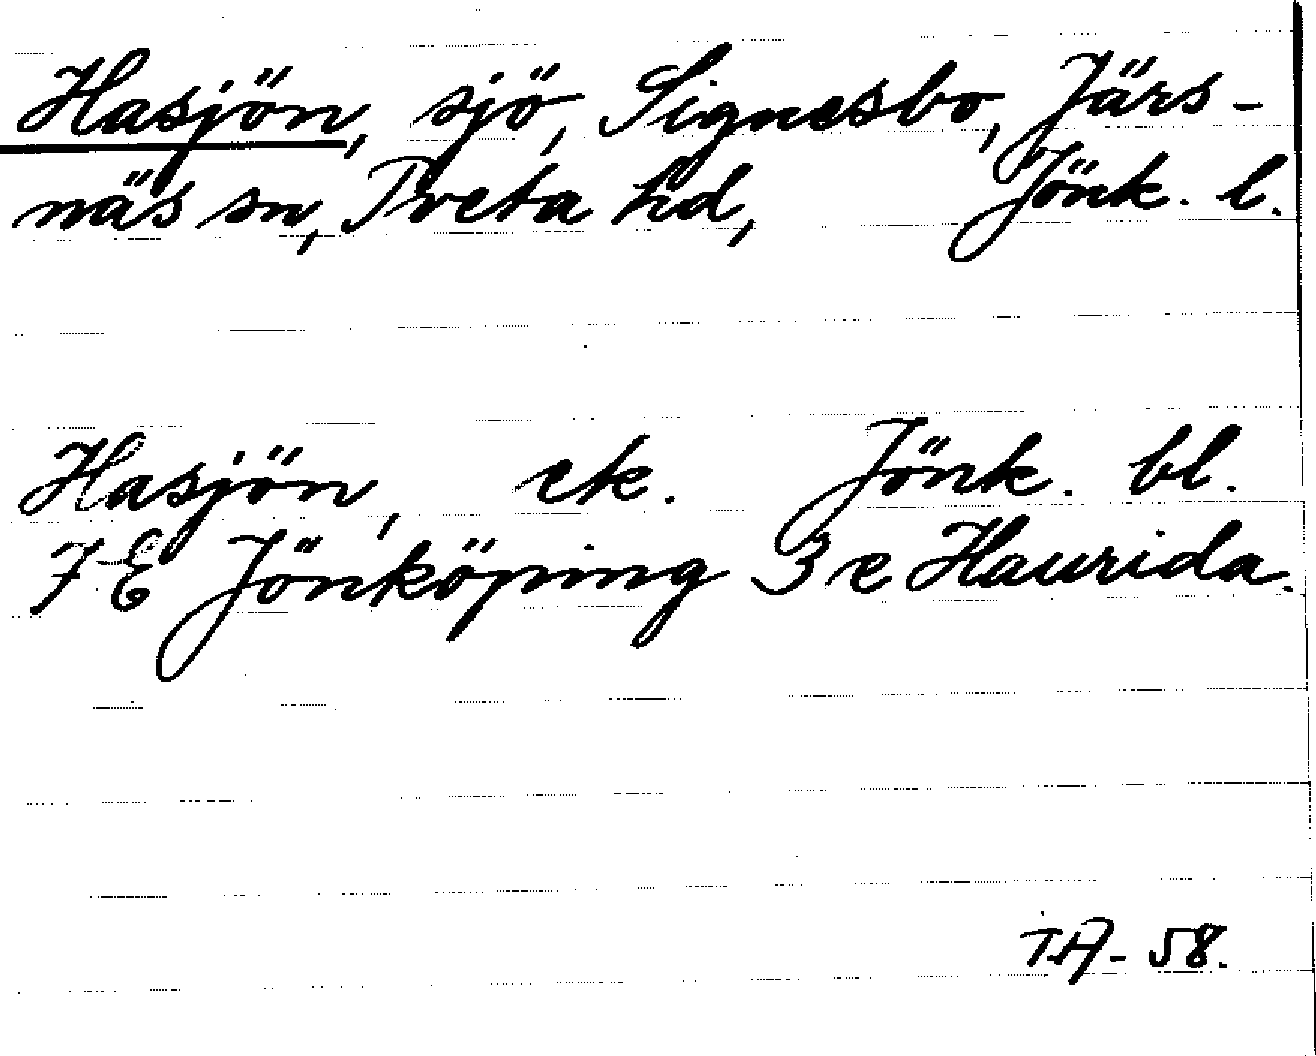 Hasjön, sjö, Signesbo, Järs-
näs sn, Tveta hd, Jönk. l.
Hasjön, ek. Jönk. bl.
7E Jönköping 3 e Haurida.
T.A-58.